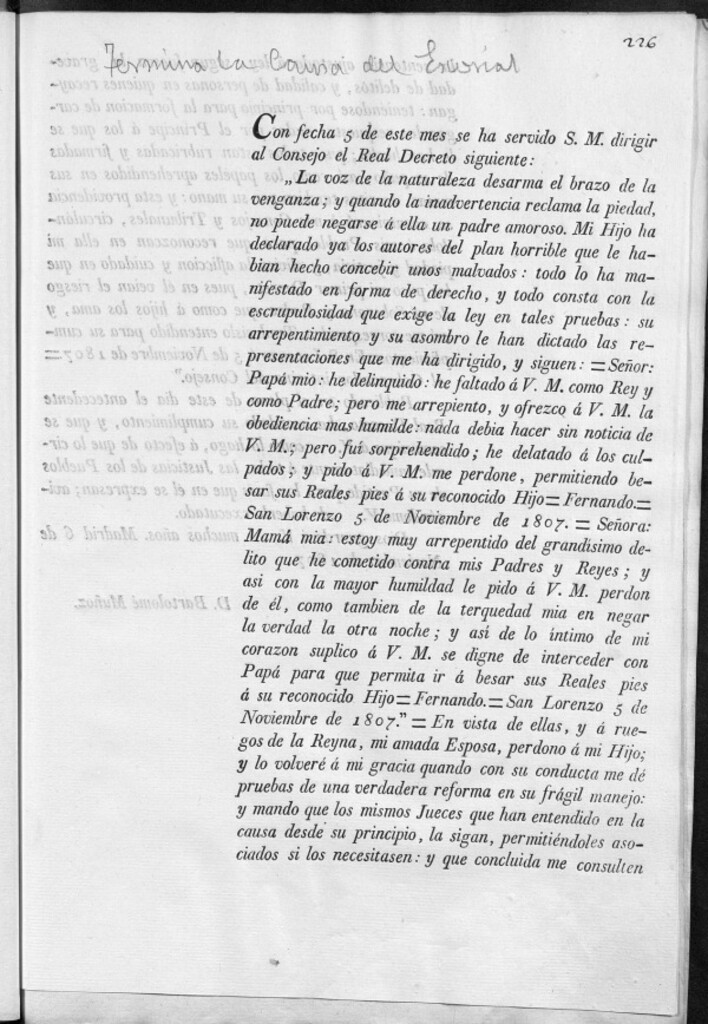 226
Termina la Causa del Escorial
Con fecha 5 de este mes se ha servido S. M. dirigir
al Consejo el Real Decreto siguiente:
„La voz de la naturaleza desarma el brazo de la
venganza; y quando la inadvertencia reclama la piedad,
no puede negarse á ella un padre amoroso. Mi Hijo ha
declarado ya los autores del plan horrible que le ha-
bian hecho concebir unos malvados: todo lo ha ma-
nifestado en forma de derecho, y todo consta con la
escrupulosidad que exîge la ley en tales pruebas: su
arrepentimiento y su asombro le han dictado las re-
presentaciones que me ha dirigido, y siguen: = Señor:
Papá mio: he delinquido: he faltado á V. M. como Rey y
como Padre; pero me arrepiento, y ofrezco á V. M. la
obediencia mas humilde: nada debia hacer sin noticia de
V. M.; pero fuí sorprehendido; he delatado á los cul-
pados; y pido á V. M. me perdone, permitiendo be-
sar sus Reales pies á su reconocido Hijo=Fernando.=
San Lorenzo 5 de Noviembre de 1807. = Señora:
Mamá mia: estoy muy arrepentido del grandisimo de-
lito que he cometido contra mis Padres y Reyes; y
asi con la mayor humildad le pido á V. M. perdon
de él, como tambien de la terquedad mia en negar
la verdad la otra noche; y así de lo íntimo de mi
corazon suplico á V. M. se digne de interceder con
Papá para que permita ir á besar sus Reales pies
á su reconocido Hijo=Fernando.=San Lorenzo 5 de
Noviembre de 1807.” = En vista de ellas, y á rue-
gos de la Reyna, mi amada Esposa, perdono á mi Hijo;
y lo volveré á mi gracia quando con su conducta me dé
pruebas de una verdadera reforma en su frágil manejo:
y mando que los mismos Jueces que han entendido en la
causa desde su principio, la sigan, permitiéndoles aso-
ciados si los necesitasen: y que concluida me consulten